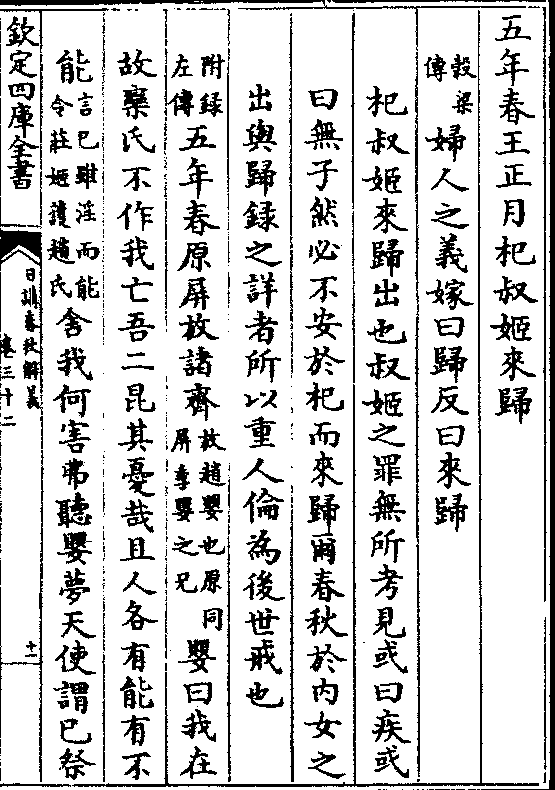 五年春王正月杞叔姬來歸
穀梁傳婦人之義嫁曰歸反曰來歸
杞叔姬來歸出也叔姬之罪無所考見或曰疾或
曰無子然必不安於杞而來歸爾春秋於内女之
出與歸録之詳者所以重人倫為後世戒也
附録左傳五年春原屏放諸齊放趙嬰也原同屏季嬰之兄嬰曰我在
故欒氏不作我亡吾二昆其憂哉且人各有能有不
能言已雖淫而能令莊姬護趙氏舍我何害弗聽嬰夢天使謂已祭
欽定四庫全書
日講春秋解義
卷三十二
十一